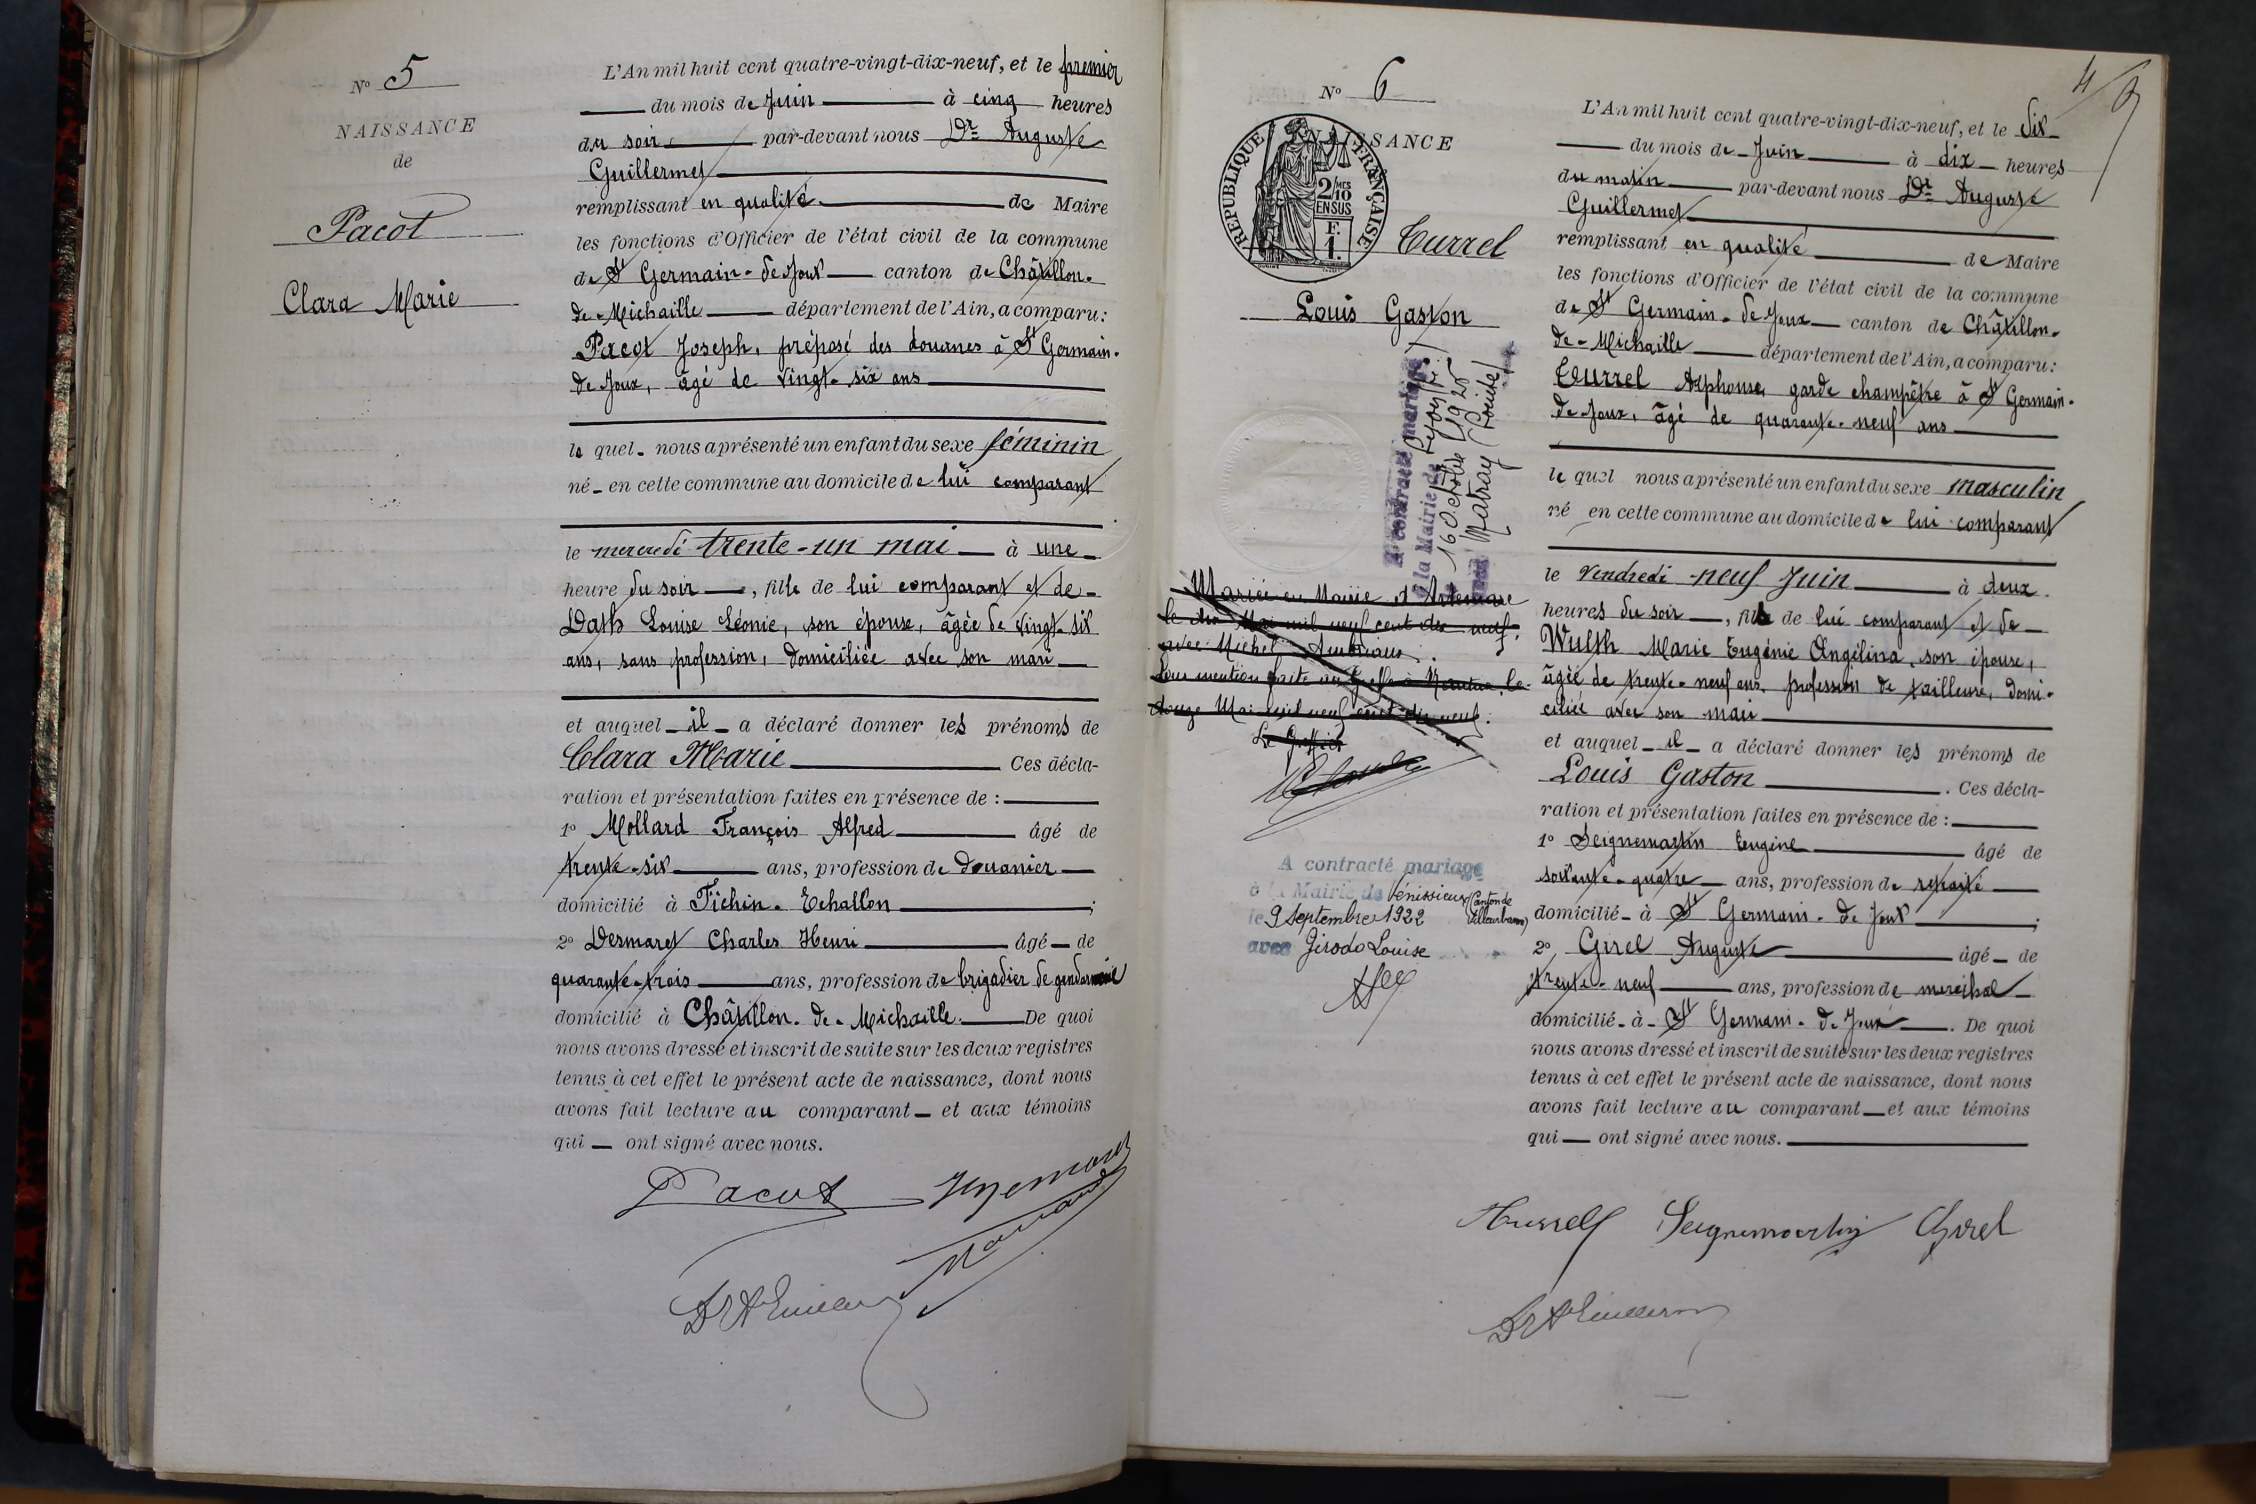 N° 5
NAISSANCE
de
Pacot
Clara Marie
L'An mil huit cent quatre-vingt-dix-neuf, et le premier
du mois de Juin à cinq heures
du soir par-devant nous Dr Auguste
Guillermet
remplissant en qualité de Maire
les fonctions d'Officier de l'état civil de la commune
de St Germain-de-Joux canton de Châtillon-
de-Michaille département de l'Ain, a comparu :
Pacot Joseph, préposé des douanes à St Germain-
de Joux, âgé de vingt-six ans
le quel nous a présenté un enfant du sexe féminin
né en cette commune au domicile de lui comparant
le mercredi trente-un mai à une
heure du soir, fille de lui comparant et de
Dath Louise Léonie, son épouse, âgée de vingt-six
ans, sans profession, domiciliée avec son mari
et auquel il a déclaré donner les prénoms de
Clara Marie Ces décla-
ration et présentation faites en présence de :
1° Mollard François Alfred âgé de
trente-six ans, profession de douanier
domicilié à Fichin-Echallon ;
2° Desmaret Charles Henri âgé de
quarante-trois ans, profession de brigadier de gendarmerie
domicilié à Châtillon-de-Michaille. De quoi
nous avons dressé et inscrit de suite sur les deux registres
tenus à cet effet le présent acte de naissance, dont nous
avons fait lecture au comparant et aux témoins
qui ont signé avec nous.
Pacot
4
N° 6
NAISSANCE
RÉPUBLIQUE FRANÇAISE
2/10 MES
EN SUS
F.
1.
Turrel
Louis Gaston
A contracté mariage
à la Mairie de Lyon
le 16 Octobre 1925
avec Matray
Mariée en Mairie d'Artemare
le dix Mai mil neuf cent dix neuf,
avec Michel
Sous mention faite au Greffe à Nantua le
douze Mai mil neuf cent dix neuf.
Le Greffier
A contracté mariage
à la Mairie de Vénissieux (Canton de
Villeurbanne)
le 9 Septembre 1922
avec Girodo Louise
L'An mil huit cent quatre-vingt-dix-neuf, et le dix
du mois de Juin à dix heures
du matin par-devant nous Dr Auguste
Guillermet
remplissant en qualité de Maire
les fonctions d'Officier de l'état civil de la commune
de St Germain-de-Joux canton de Châtillon-
de-Michaille département de l'Ain, a comparu :
Turrel Alphonse, garde champêtre à St Germain-
de-Joux, âgé de quarante-neuf ans
le quel nous a présenté un enfant du sexe masculin
né en cette commune au domicile de lui comparant
le vendredi neuf Juin à deux
heures du soir, fils de lui comparant et de
Wulth Marie Eugénie Angélina, son épouse,
âgée de trente-neuf ans, profession de tailleuse, domi-
ciliée avec son mari
et auquel il a déclaré donner les prénoms de
Louis Gaston. Ces décla-
ration et présentation faites en présence de :
1° Seignemartin Eugène âgé de
soixante-quatre ans, profession de retraité
domicilié à St Germain-de-Joux ;
2° Girel Auguste âgé de
trente-neuf ans, profession de maréchal
domicilié à St Germain-de-Joux. De quoi
nous avons dressé et inscrit de suite sur les deux registres
tenus à cet effet le présent acte de naissance, dont nous
avons fait lecture au comparant et aux témoins
qui ont signé avec nous.
Turrel Seignemartin Girel